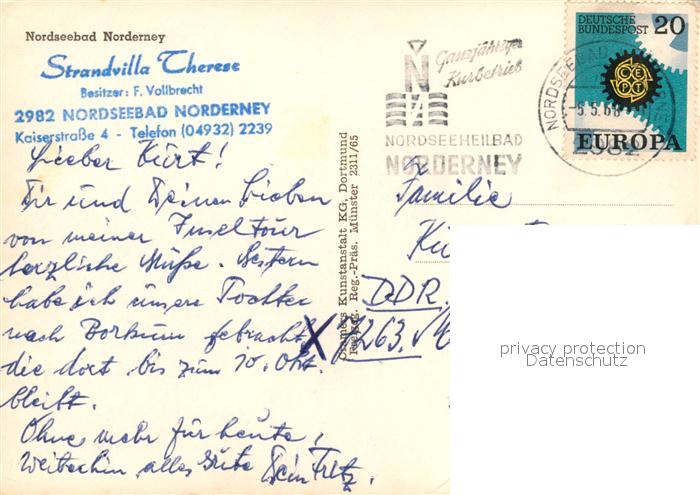 Nordseebad Norderney
Strandvilla Therese
Besitzer: F. Vollbrecht
2982 NORDSEEBAD NORDERNEY
Kaiserstraße 4 - Telefon (04932) 2239
Lieber Kurt!
Dir und Deinen Lieben
von meiner Inseltour
herzliche Grüße. Gestern
habe ich unsere Tochter
nach Borkum gebracht,
die dort bis zum 10. Okt.
bleibt.
Ohne mehr für heute,
Weiterhin alles Gute Dein Fritz.
Cramers Kunstanstalt KG, Dortmund
Freigeg. Reg.-Präs. Münster 2311/65
Ganzjähriger
Kurbetrieb
N
NORDSEEHEILBAD
NORDERNEY
NORDSEEBAD
-5.5.68
2982
DEUTSCHE
BUNDESPOST 20
CEPT
EUROPA
Familie
DDR.
X 7263.
privacy protection
Datenschutz